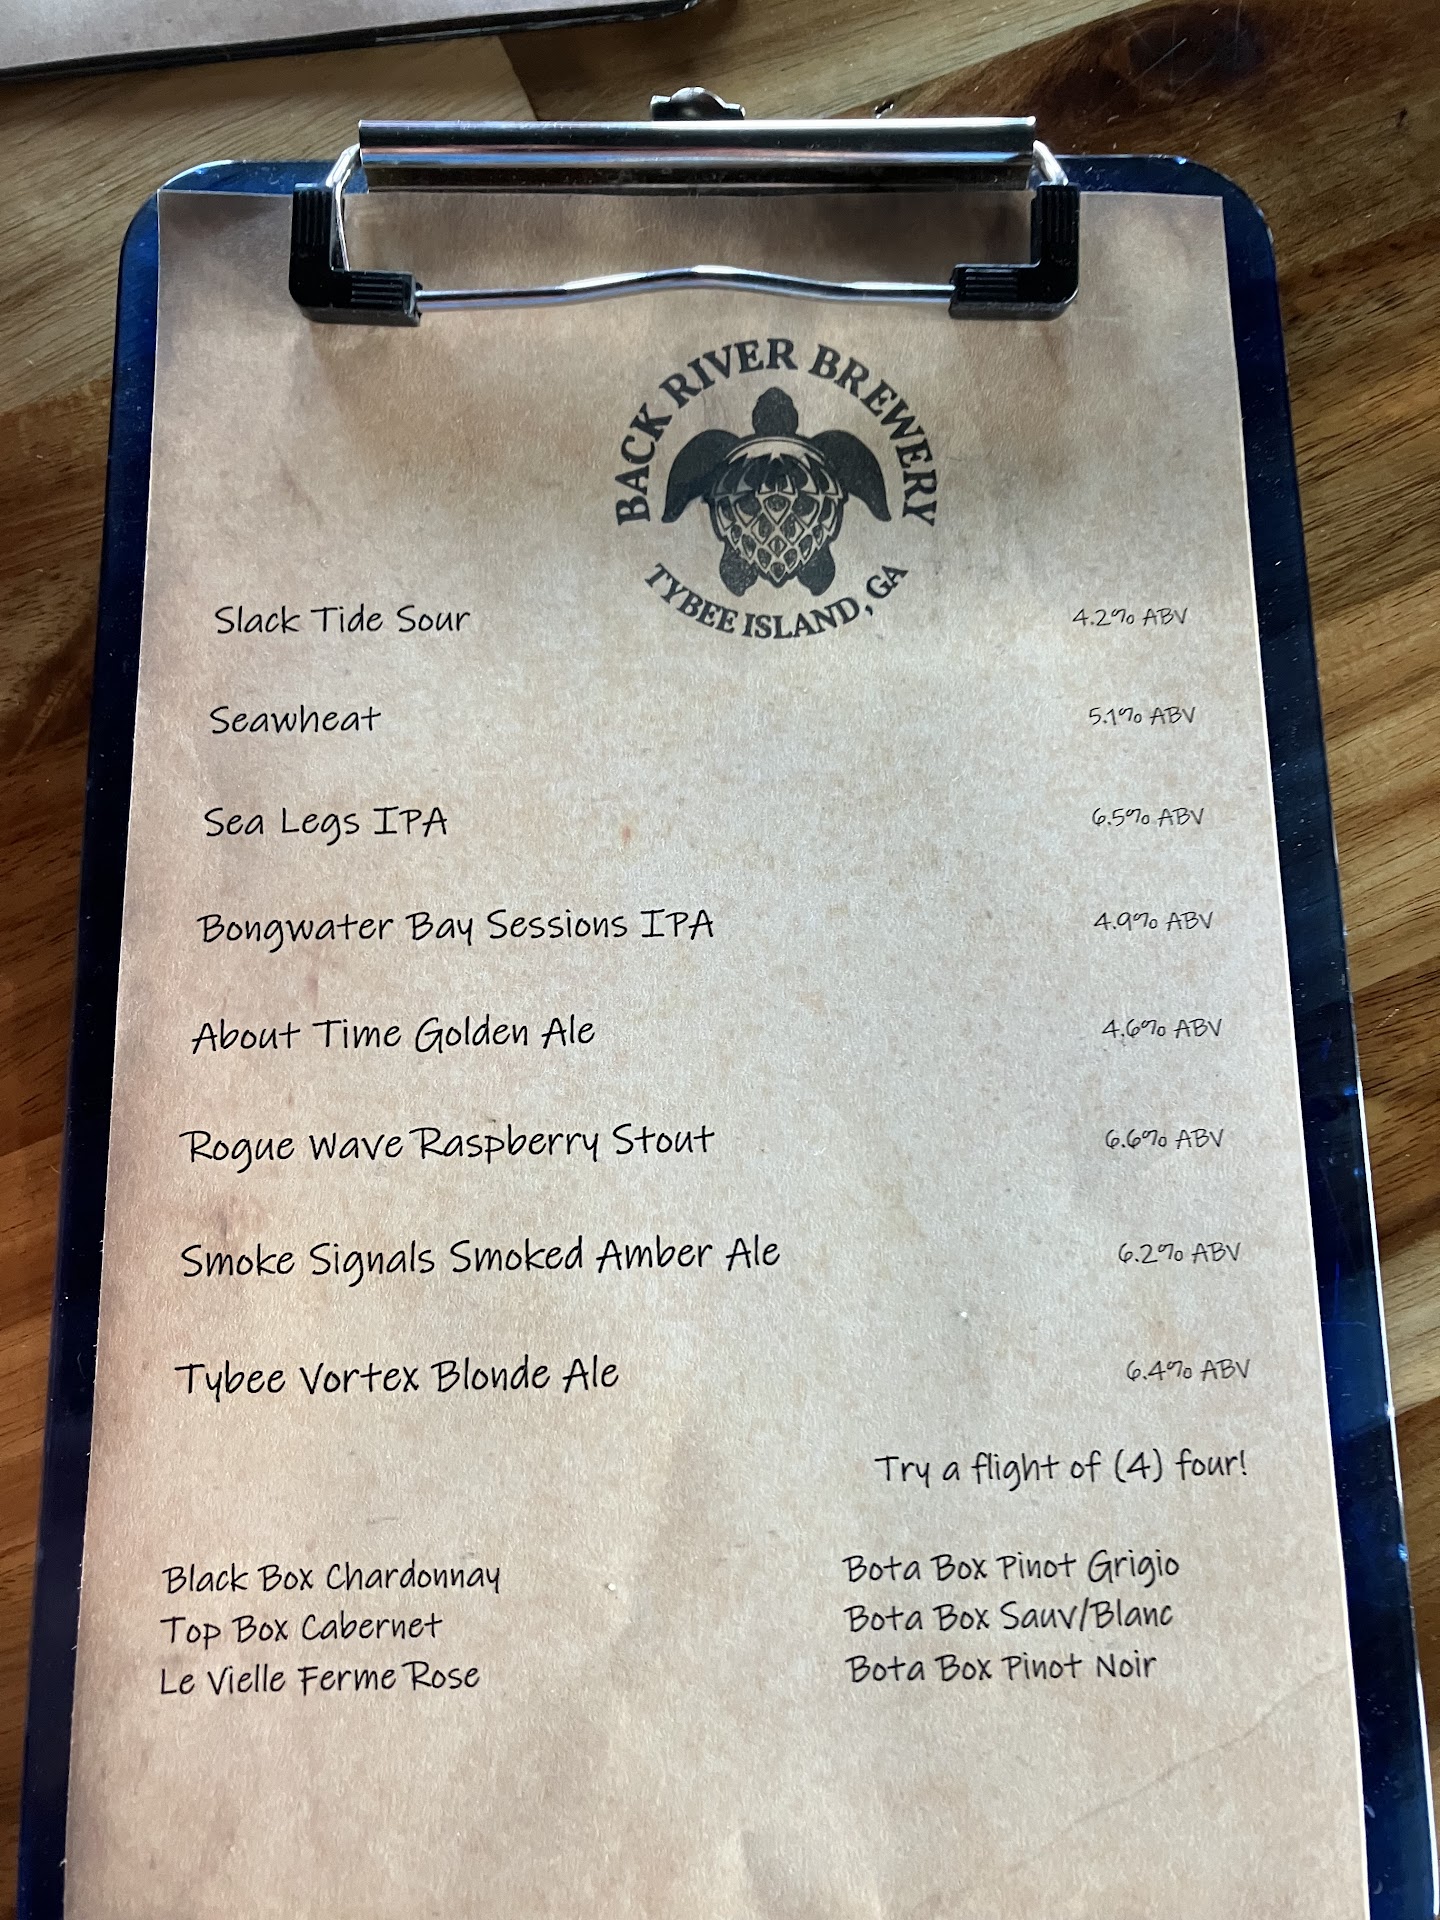 BACK RIVER BREWERY
TYBEE ISLAND, GA
Slack Tide Sour 4.2% ABV
Seawheat 5.1% ABV
Sea Legs IPA 6.5% ABV
Bongwater Bay Sessions IPA 4.9% ABV
About Time Golden Ale 4.6% ABV
Rogue Wave Raspberry Stout 6.6% ABV
Smoke Signals Smoked Amber Ale 6.2% ABV
Tybee Vortex Blonde Ale 6.4% ABV
Try a flight of (4) four!
Black Box Chardonnay
Top Box Cabernet
Le Vielle Ferme Rose
Bota Box Pinot Grigio
Bota Box Sauv/Blanc
Bota Box Pinot Noir